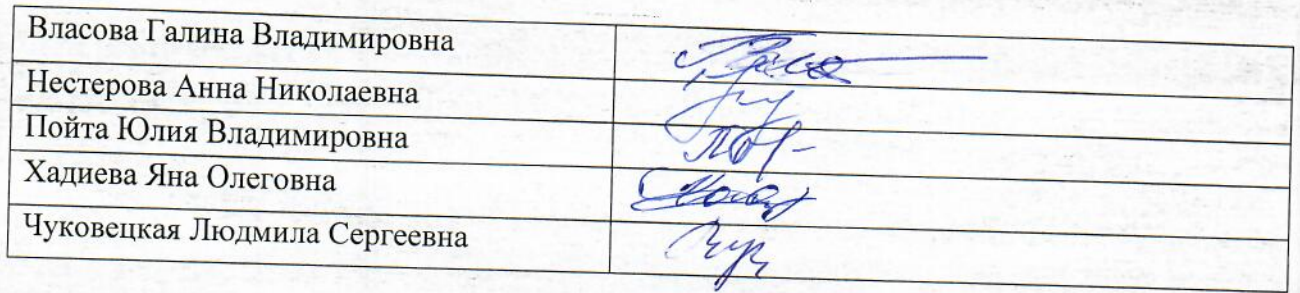 Власова Галина Владимировна
Нестерова Анна Николаевна
Пойта Юлия Владимировна
Хадиева Яна Олеговна
Чуковецкая Людмила Сергеевна